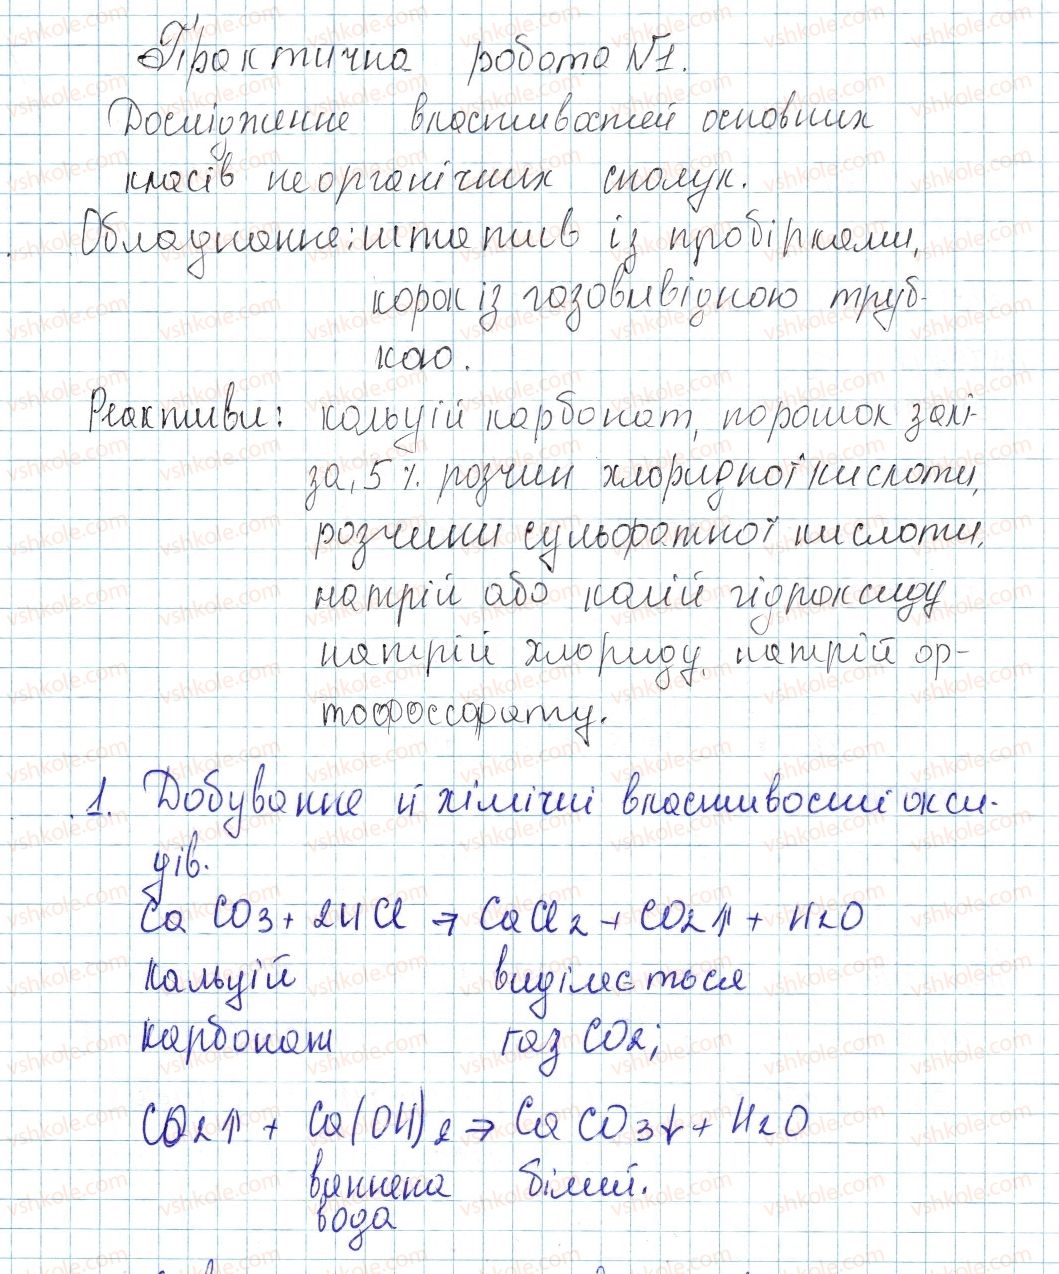 Практична робота №1.
Дослідження властивостей основних
класів неорганічних сполук.
Обладнання: штатив із пробірками,
корок із газовивідною труб-
кою.
Реактиви: кальцій карбонат, порошок залі-
за, 5% розчин хлоридної кислоти,
розчини сульфатної кислоти,
натрій або калій гідроксиду
натрій хлориду, натрій ор-
тофосфату.
1. Добування й хімічні властивості окси-
дів.
CaCO3 + 2HCl → CaCl2 + CO2↑ + H2O
кальцій виділяється
карбонат газ CO2;
CO2↑ + Ca(OH)2 → CaCO3↓ + H2O
вапнена білий.
вода